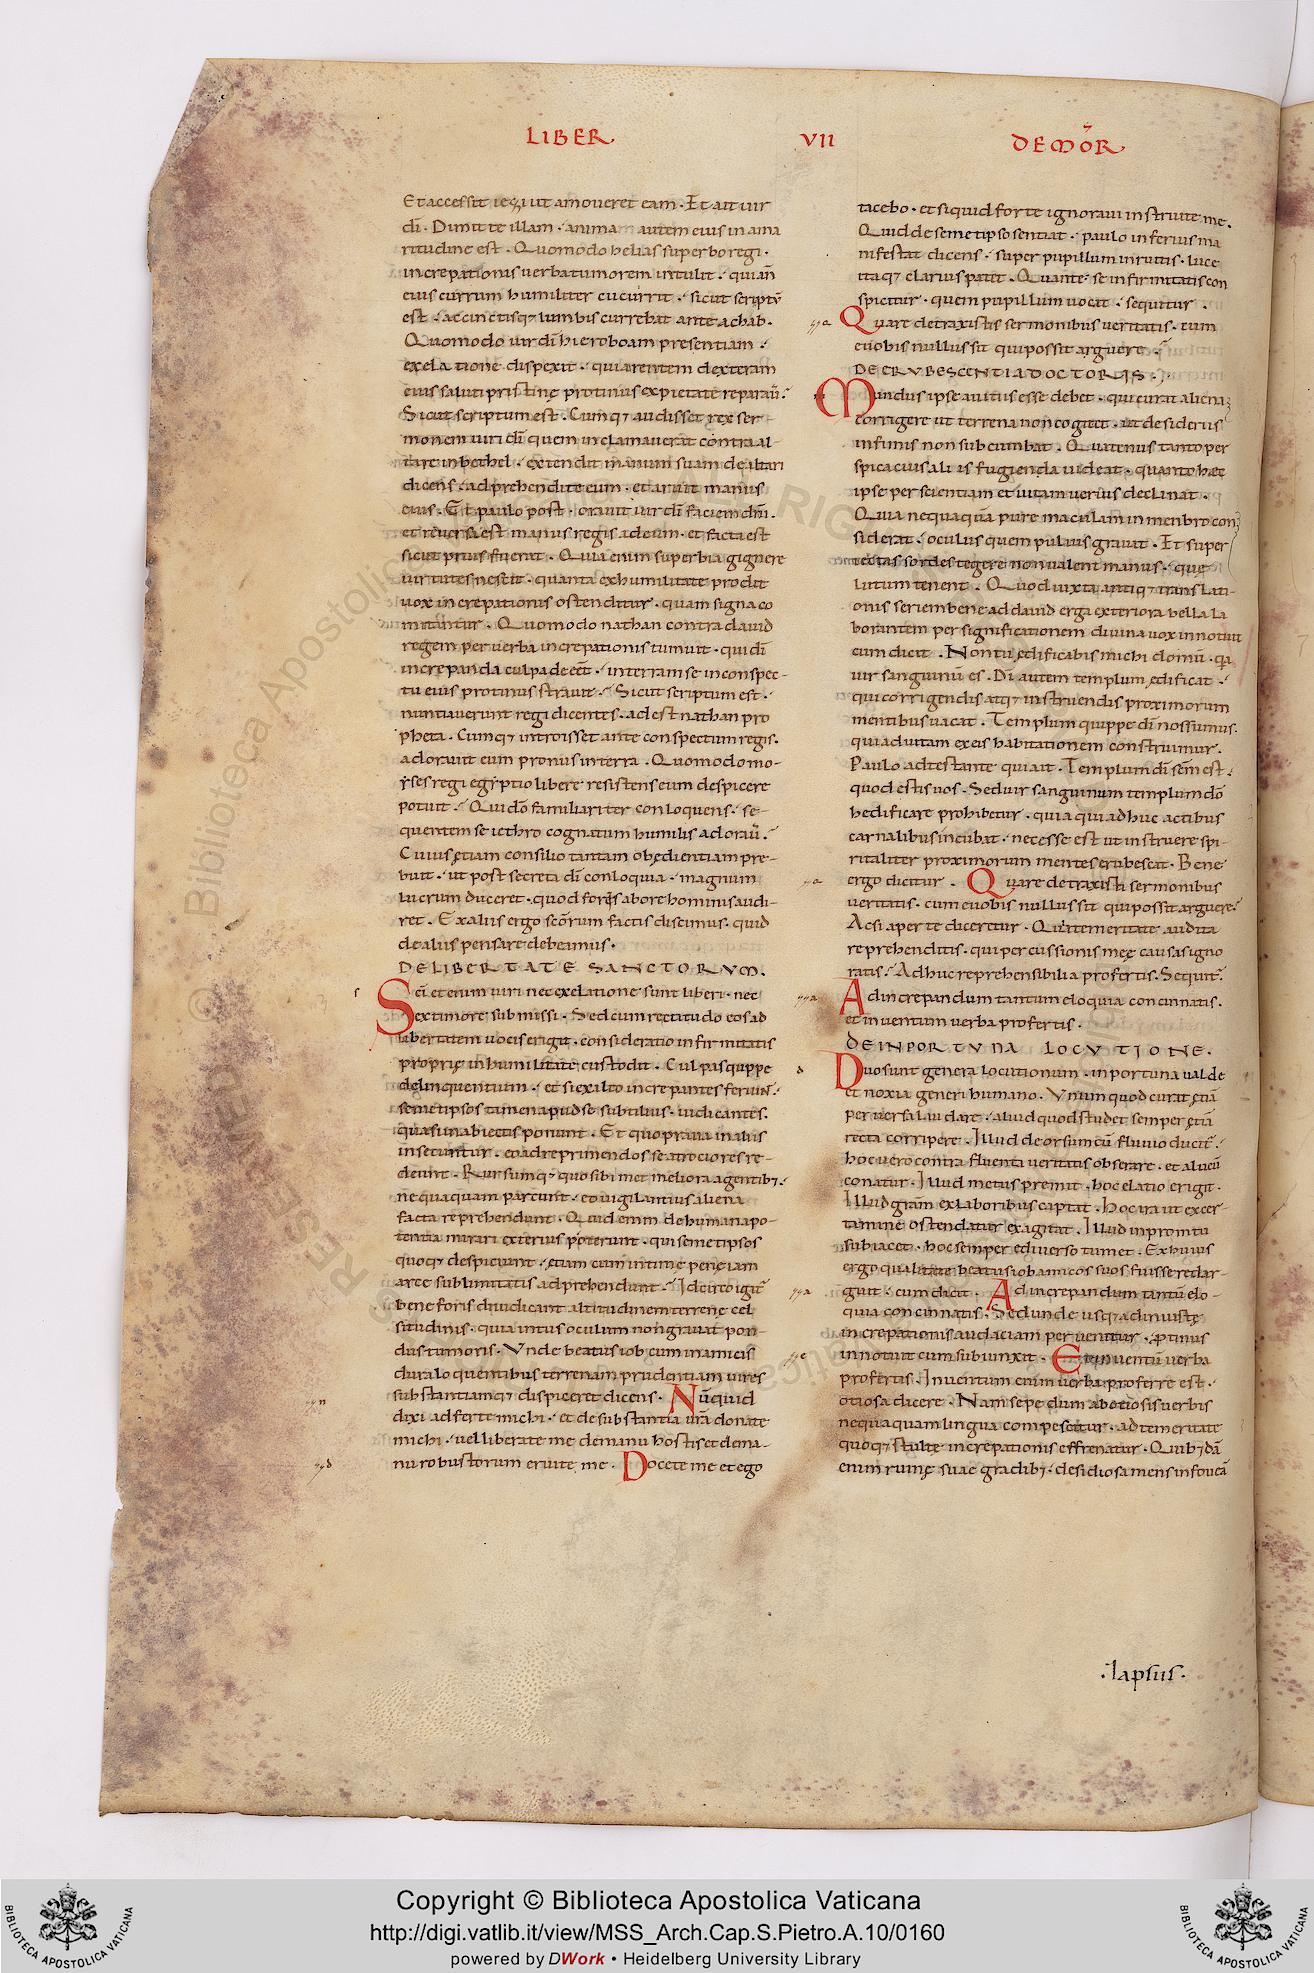 LIBER VII DE MOR̄
Et accessit iezi ut amoueret eam · Et ait uir
dī · Dimitte illam · anima autem eius in ama
ritudine est · Quomodo helias superbo regi ·
increpationis uerba tumorem intulit · qui an̄
eius currum humiliter cucurrit · sicut scriptū
est · accinctisq; lumbis currebat ante achab ·
Quomodo uir dī hieroboam presentiam ·
ex elatione dispexit · qui arentem dexteram
eius saluti pristinę protinus ex pietate reparau̅ ·
Sicut scriptum est · Cumq; audisset rex ser
monem uiri dī quem inclamauerat contra al
tare in bethel · extendit manum suam de altari
dicens · adprehendite eum · et aruit manus
eius · Et paulo post · orauit uir dī faciem dn̄i ·
et reuersa est manus regis ad eum · et facta est
sicut prius fuerat · Quia enim superbia gignere
uirtutes nescit · quanta ex humilitate prodit
uox increpationis ostenditur · quam signa co
mitantur · Quomodo nathan contra dauid
regem per uerba increpationis tumuit · qui dī
increpanda culpa deēēt · in terram se in conspec-
tu eius protinus strauit · Sicut scriptum est ·
nuntiauerunt regi dicentes · adest nathan pro
pheta · Cumq; introisset ante conspectum regis ·
adorauit eum pronus in terra · Quomodo mo-
yses regi egyptio libere resistens eum despicere
potuit · Qui dō familiariter conloquens · se-
quentem se iethro cognatum humilis adorau̅ ·
Cuius ętiam consilio tantam obędientiam pre-
buit · ut post secreta dī conloquia · magnum
lucrum duceret · quod foris ab ore hominis audi-
ret · Ex aliis ergo scōrum factis discimus · quid
de aliis pensare debeamus ·
DE LIBERTATE SANCTORUM.
Scī etenim uiri nec ex elatione sunt liberi · nec
ex timore submissi · Sed cum rectitudo eos ad
libertatem uocis erigit · consideratio infirmitatis
proprię in humilitate custodit · Culpas quippe
delinquentium · etsi ex alto increpantes feriun̄ ·
semetipsos tamen apud se subtilius iudicantes ·
quasi in abiectis ponunt · Et quo praua in aliis
insecuntur · eo ad reprimendos se atrociores re-
deunt · Rursumq; quo sibimet meliora agentibꝫ ·
nequaquam parcunt · eo uigilantius aliena
facta reprehendunt · Quid enim de humana po-
tentia mirari exterius poterunt · qui semetipsos
quoq; despiciunt · ętiam cum intimę penę iam
arcę sublimitatis adprehendunt · Idcirco igit̄
bene foris diiudicant altitudinem terrenę cel
situdinis · quia intus oculum non grauat pon-
dus tumoris · Unde beatus iob cum inimicis
dura loquentibus terrenam prudentiam uires
substantiamq; dispiceret dicens · Nūquid
dixi adferte michi · et de substantia ur̄a donate
michi · uel liberate me de manu hostis et de ma-
nu robustorum eruite me · Docete me et ego
tacebo · et siquid forte ignoraui instruite me ·
Quid de semetipso sentiat · paulo inferius ma
nifestat dicens · super pupillum inruitis · luce
itaq; clarius patet · Quante se infirmitatis con
spicitur · quem pupillum uocat · sequitur ·
Quare detraxistis sermonibus ueritatis · cum
e uobis nullus sit qui possit arguere ·
DE ERUBESCENTIA DOCTORIS ·
Mundus ipse a uitiis esse debet · qui curat aliena
corrigere ut terrena non cogitet · ut desideriis
infimis non subcumbat · Quatenus tanto per
spicacius aliis fugienda uideat · quanto hęc
ipse per scientiam et uitam uerius declinat ·
Quia nequaquā pure maculam in menbro con
siderat · oculus quem puluis grauat · Et super
iectas sordes tegere non ualent manus · quę
lutum tenent · Quod iuxta antiq; translati-
onis seriem bene ad dauid erga exteriora bella la
borantem per significationem diuina uox innotuit
cum dicit · Non tu ędificabis michi domū · qa
uir sanguinū es · Dī autem templum ędificat ·
qui corrigendis atq; instruendis proximorum
mentibus uacat · Templum quippe dī nos sumus ·
qui ad uitam ex eis habitationem construimur ·
Paulo adtestante qui ait · Templum dī scm̄ est ·
quod estis uos · Sed uir sanguinum templum dō
hedificare prohibetur · quia qui adhuc actibus
carnalibus incubat · necesse est ut instruere spi-
ritaliter proximorum mentes erubescat · Bene
ergo dicitur · Quare detraxistis sermonibus
ueritatis · cum e uobis nullus sit qui possit arguere ·
Ac si aperte diceretur · Qua temeritate audita
reprehenditis · qui percussionis meę causas igno
ratis · Adhuc reprehensibilia profertis · Sequit̄ ·
Ad increpandum tantum eloquia concinnatis ·
et in uentum uerba profertis ·
DE INPORTUNA LOCUTIONE.
Duo sunt genera locutionum · inportuna ualde
et noxia generi humano · Unum quod curat ętiā
peruersa laudare · aliud quod studet semper ętiā
recta corripere · Illud deorsum cū fluuio ducit̄ ·
hoc uero contra fluenta ueritatis obserare · et alueū
conatur · Illud metus premit · hoc elatio erigit ·
Illud gr̄am ex laboribus captat · Hoc ira ut excer-
tamine ostendatur exagitat · Illud in promtu
subiacet · hoc semper e diuerso tumet · Ex huius
ergo qualitate beatus iob amicos suos fuisse redar-
guit · cum dicit · Ad increpandum tantū elo-
quia concinnatis · Sed unde usq; ad iniustę
increpationis audaciam per uenitur · ꝓtinus
innotuit cum subiunxit · Et in uentū uerba
profertis · In uentum enim uerba proferre est ·
otiosa dicere · Nam sepe dum ab otiosis uerbis
nequaquam lingua compescitur · ad temeritatę
quoq; stultę increpationis effrenatur · Quibꝫdā
enim ruinę suae gradibꝫ · desidiosa mens in foueā
·lapsus·
Copyright © Biblioteca Apostolica Vaticana
http://digi.vatlib.it/view/MSS_Arch.Cap.S.Pietro.A.10/0160
powered by DWork • Heidelberg University Library